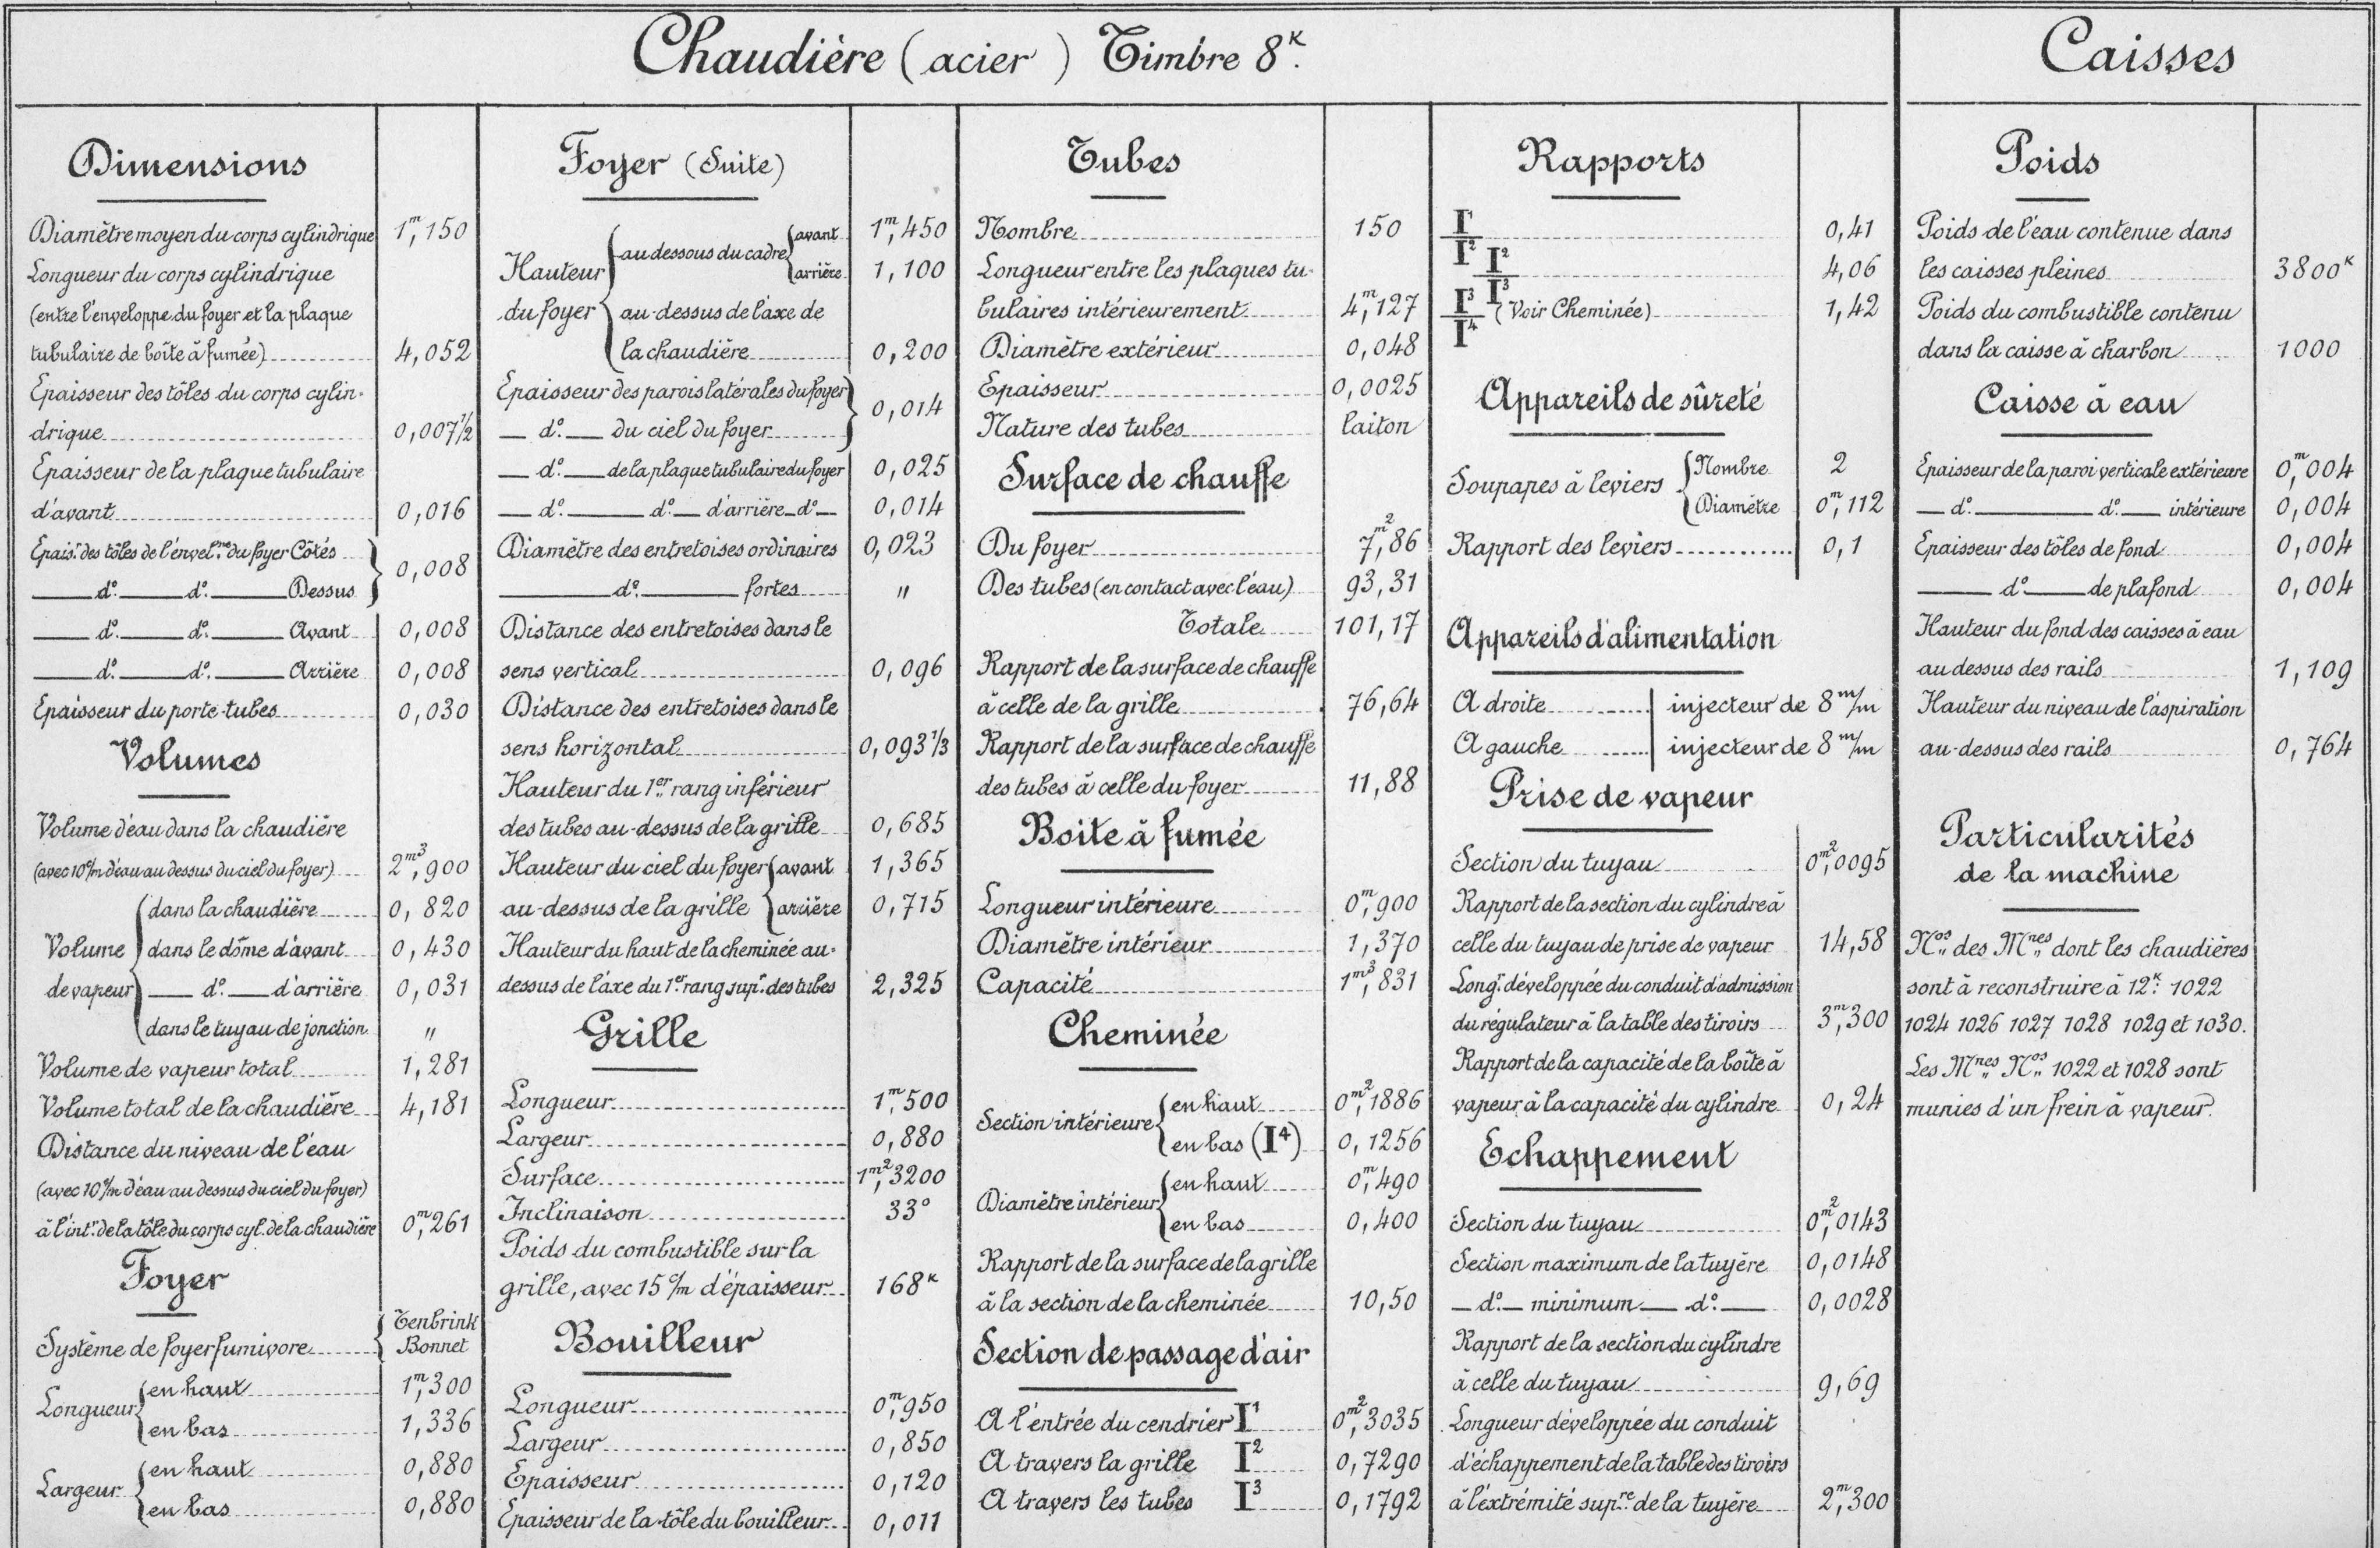 Chaudière (acier) Timbre 8ᴷ.
Dimensions
Diamètre moyen du corps cylindrique 1ᵐ,150
Longueur du corps cylindrique
(entre l'enveloppe du foyer et la plaque
tubulaire de boîte à fumée) 4,052
Epaisseur des tôles du corps cylin-
drique 0,007½
Epaisseur de la plaque tubulaire
d'avant 0,016
Epaisʳ des tôles de l'envelᵐᵉ du foyer Côtés
— dº — dº — Dessus } 0,008
— dº — dº — Avant 0,008
— dº — dº — Arrière 0,008
Epaisseur du porte-tubes 0,030
Volumes
Volume d'eau dans la chaudière
(avec 10 c/m d'eau au dessus du ciel du foyer) 2ᵐ³,900
Volume de vapeur { dans la chaudière 0,820
dans le dôme d'avant 0,430
— dº — d'arrière 0,031
dans le tuyau de jonction "
Volume de vapeur total 1,281
Volume total de la chaudière 4,181
Distance du niveau de l'eau
(avec 10 c/m d'eau au dessus du ciel du foyer)
à l'intʳ de la tôle du corps cyl. de la chaudière 0ᵐ,261
Foyer
Système de foyer fumivore { Tenbrink
Bonnet
Longueur { en haut 1ᵐ,300
en bas 1,336
Largeur { en haut 0,880
en bas 0,880
Foyer (Suite)
Hauteur du foyer { au dessous du cadre { avant 1ᵐ,450
arrière 1,100
au-dessus de l'axe de
la chaudière 0,200
Epaisseur des parois latérales du foyer
— dº — du ciel du foyer } 0,014
— dº — de la plaque tubulaire du foyer 0,025
— dº — dº — d'arrière — dº — 0,014
Diamètre des entretoises ordinaires 0,023
— dº — fortes "
Distance des entretoises dans le
sens vertical 0,096
Distance des entretoises dans le
sens horizontal 0,093⅓
Hauteur du 1ᵉʳ rang inférieur
des tubes au-dessus de la grille 0,685
Hauteur du ciel du foyer { avant 1,365
au-dessus de la grille { arrière 0,715
Hauteur du haut de la cheminée au-
dessus de l'axe du 1ᵉʳ rang supʳ des tubes 2,325
Grille
Longueur 1ᵐ,500
Largeur 0,880
Surface 1ᵐ²,3200
Inclinaison 33°
Poids du combustible sur la
grille, avec 15 c/m d'épaisseur 168ᴷ
Bouilleur
Longueur 0ᵐ,950
Largeur 0,850
Epaisseur 0,120
Epaisseur de la tôle du bouilleur 0,011
Tubes
Nombre 150
Longueur entre les plaques tu-
bulaires intérieurement 4ᵐ,127
Diamètre extérieur 0,048
Epaisseur 0,0025
Nature des tubes laiton
Surface de chauffe
Du foyer 7ᵐ²,86
Des tubes (en contact avec l'eau) 93,31
Totale 101,17
Rapport de la surface de chauffe
à celle de la grille 76,64
Rapport de la surface de chauffe
des tubes à celle du foyer 11,88
Boite à fumée
Longueur intérieure 0ᵐ,900
Diamètre intérieur 1,370
Capacité 1ᵐ³,831
Cheminée
Section intérieure { en haut 0ᵐ²,1886
en bas (I⁴) 0,1256
Diamètre intérieur { en haut 0ᵐ,490
en bas 0,400
Rapport de la surface de la grille
à la section de la cheminée 10,50
Section de passage d'air
A l'entrée du cendrier I¹ 0ᵐ²,3035
A travers la grille I² 0,7290
A travers les tubes I³ 0,1792
Rapports
I¹/I² 0,41
I²/I³ 4,06
I³/I⁴ (Voir Cheminée) 1,42
Appareils de sûreté
Soupapes à leviers { Nombre 2
Diamètre 0ᵐ,112
Rapport des leviers 0,1
Appareils d'alimentation
A droite injecteur de 8 m/m
A gauche injecteur de 8 m/m
Prise de vapeur
Section du tuyau 0ᵐ²,0095
Rapport de la section du cylindre à
celle du tuyau de prise de vapeur 14,58
Longʳ développée du conduit d'admission
du régulateur à la table des tiroirs 3ᵐ,300
Rapport de la capacité de la boîte à
vapeur à la capacité du cylindre 0,24
Echappement
Section du tuyau 0ᵐ²,0143
Section maximum de la tuyère 0,0148
— dº — minimum — dº — 0,0028
Rapport de la section du cylindre
à celle du tuyau 9,69
Longueur développée du conduit
d'échappement de la table des tiroirs
à l'éxtrémité supʳᵉ de la tuyère 2ᵐ,300
Caisses
Poids
Poids de l'eau contenue dans
les caisses pleines 3800ᴷ
Poids du combustible contenu
dans la caisse à charbon 1000
Caisse à eau
Epaisseur de la paroi verticale extérieure 0ᵐ,004
— dº — dº — intérieure 0,004
Epaisseur des tôles de fond 0,004
— dº — de plafond 0,004
Hauteur du fond des caisses à eau
au dessus des rails 1,109
Hauteur du niveau de l'aspiration
au-dessus des rails 0,764
Particularités
de la machine
Nᵒˢ des Mⁿᵉˢ dont les chaudières
sont à reconstruire à 12ᴷ: 1022
1024 1026 1027 1028 1029 et 1030.
Les Mⁿᵉˢ Nᵒˢ 1022 et 1028 sont
munies d'un frein à vapeur.